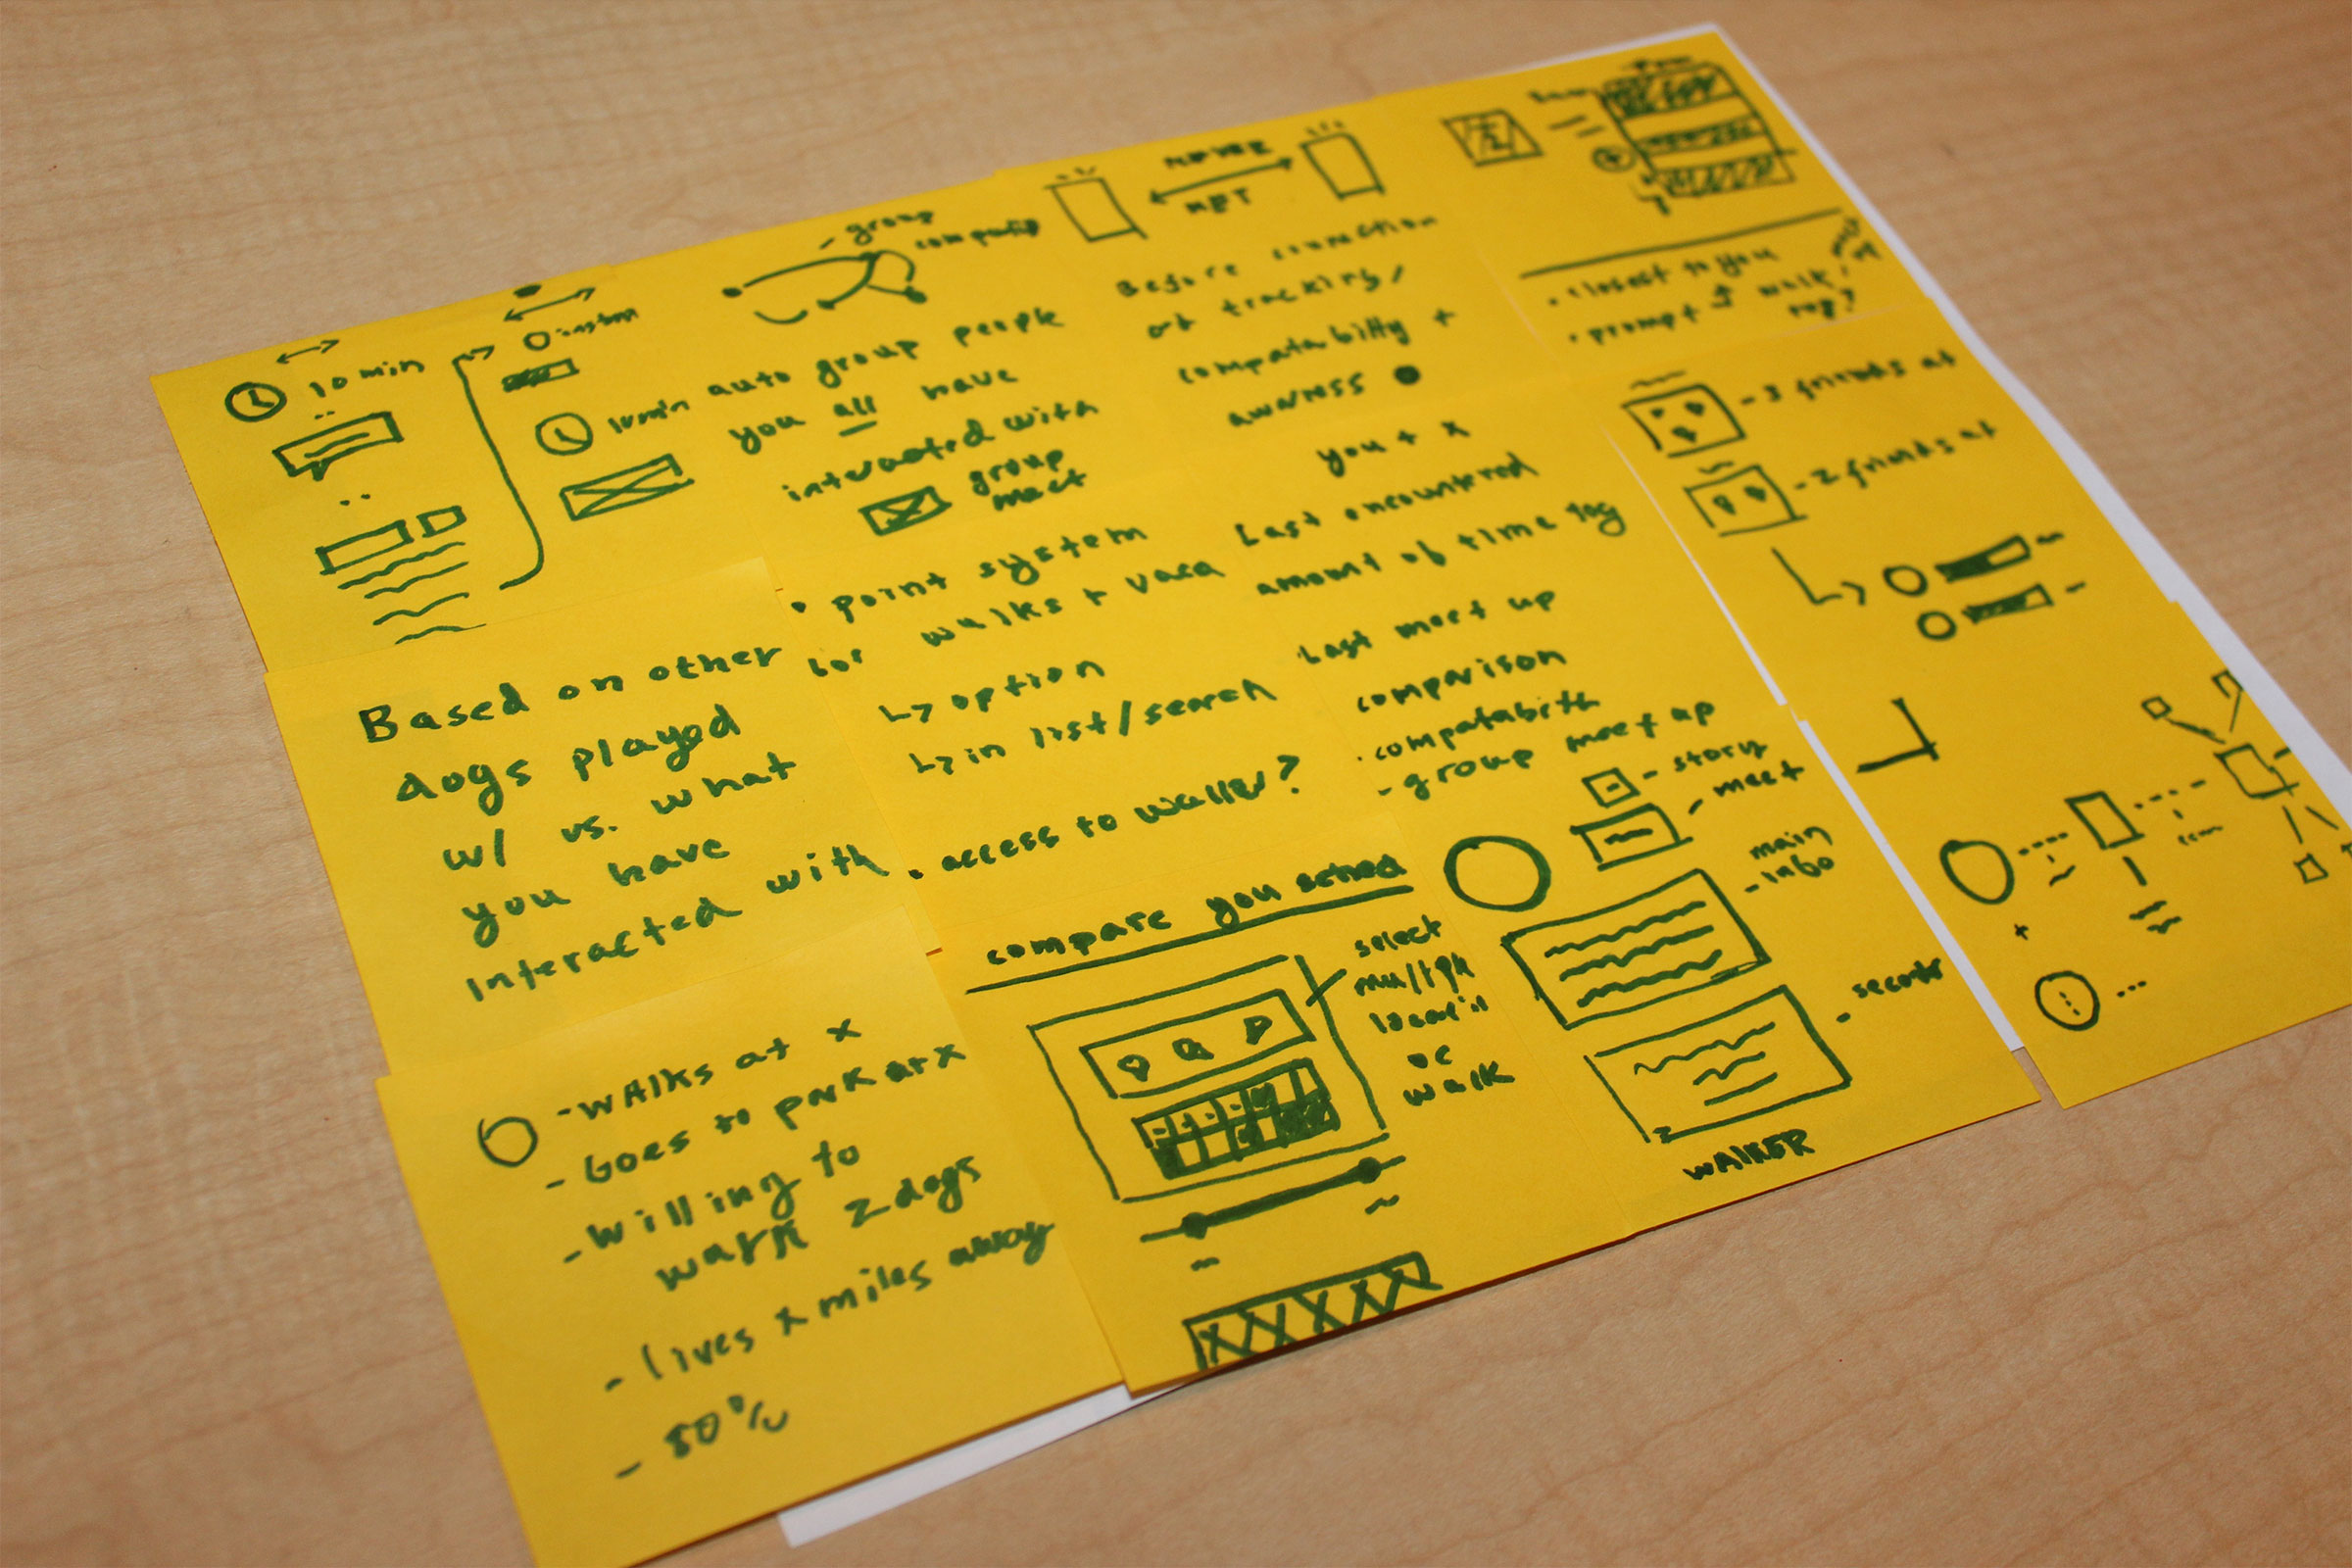 10 min
10min
- group
auto group people
you all have
interacted with
group
meet
NEVER
MET
Before connection
or tracking/
compatabilty +
awarness
. closest to you
. prompt walk
- 3 friends at
- 2 friends at
Based on other
dogs played
w/ vs. what
you have
interacted with
• point system
for walks + vaca
↳ option
↳ in list/search
. access to walker?
you + x
Last encountered
amount of time tog
Last meet up
comparison
. compatabilty
- group meet up
- walks at x
- Goes to park at x
- willing to
walk 2 dogs
- lives x miles away
- 80%
compare you sched
select
multiple
or
walk
- story
- meet
main
- info
WALKER